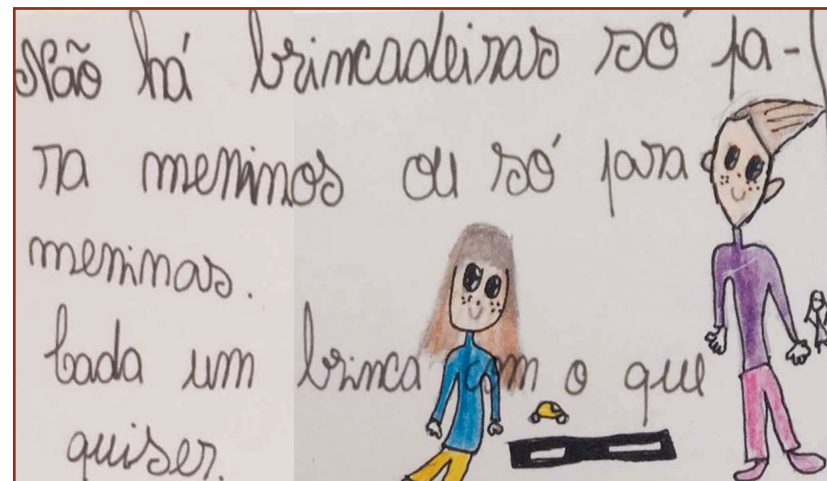 Não há brincadeiras só pa-
ra meninos ou só para
meninas.
Cada um brinca com o que
quiser.